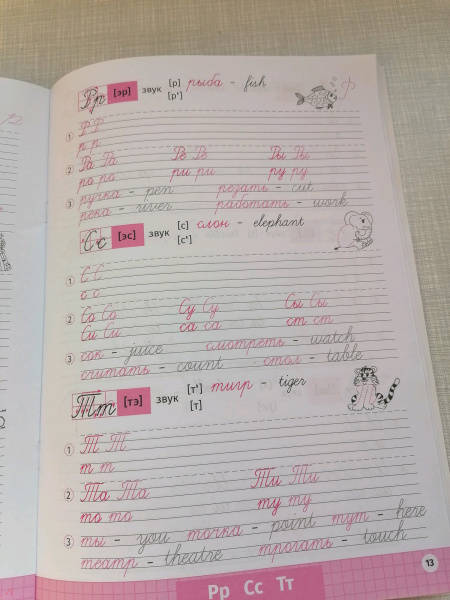 Рр [эр] звук [р] [р'] рыба - fish
① Р Р
р р
② Ра Ра Ре Ре Ры Ры
ро ро ри ри ру ру
③ ручка - pen резать - cut
река - river работать - work
Сс [эс] звук [с] [с'] слон - elephant
① С С
с с
② Со Со Су Су Сы Сы
Си Си са са ст ст
③ сок - juice смотреть - watch
считать - count стол - table
Тт [тэ] звук [т'] [т] тигр - tiger
① Т Т
т т
② Та Та Ти Ти
то то ту ту
③ ты - you точка - point тут - here
театр - theatre трогать - touch
13
Рр Сс Тт